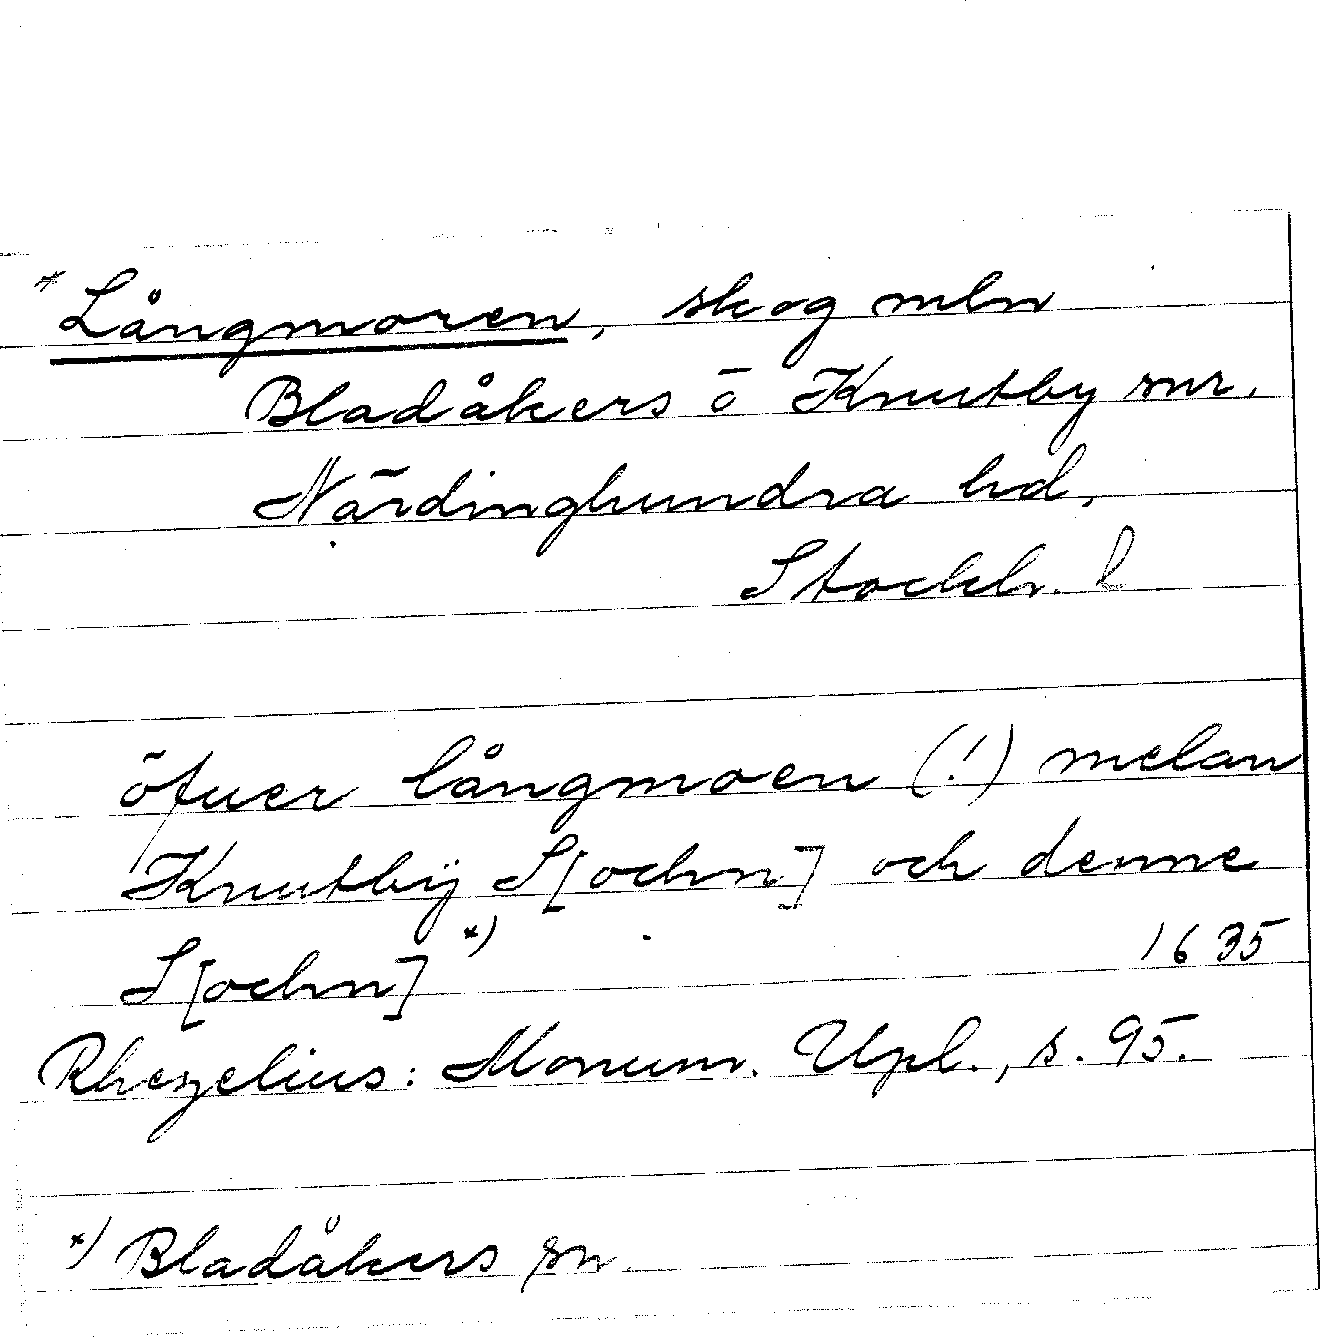 * Långmoren, skog mln
Bladåkers o Knutby snr.
Närdinghundra hd,
Stockh. l
öfuer långmoen (!) melan
Knutbÿ S[ochn] och denne
S[ochn] *) 1635
Rhezelius: Monum. Upl., s. 95.
*) Bladåkers sn.